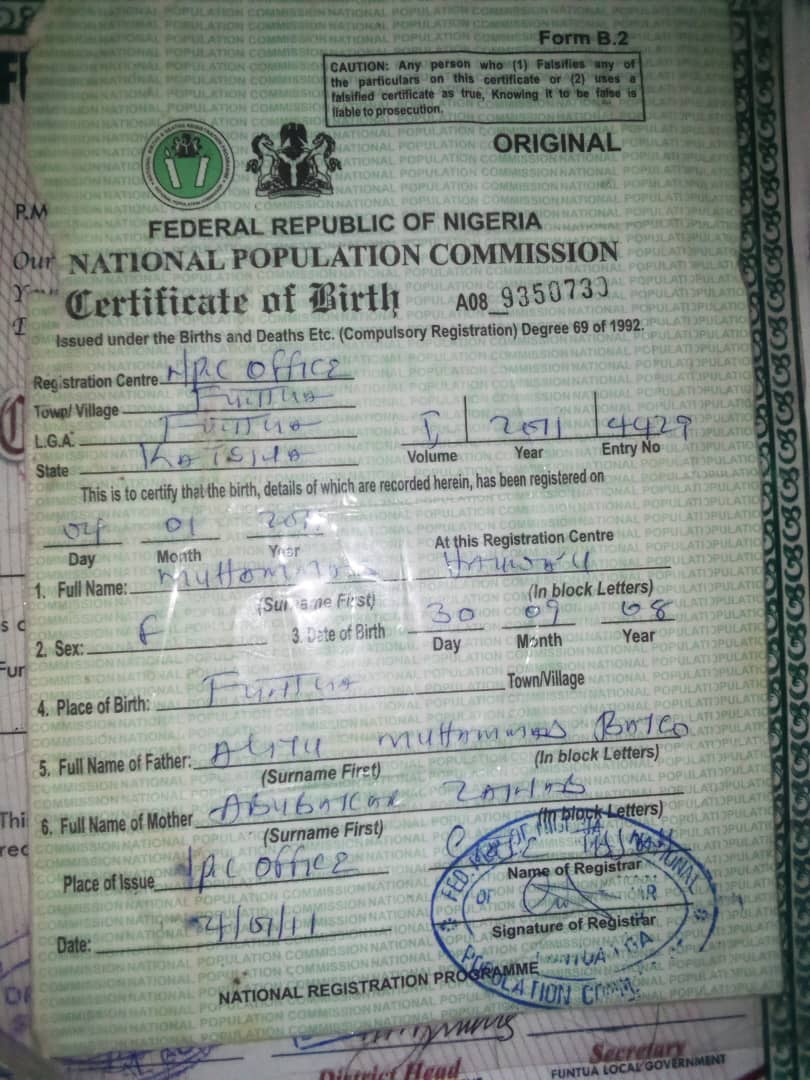 Form B.2
CAUTION: Any person who (1) Falsifies any of
the particulars on this certificate or (2) uses a
falsified certificate as true, Knowing it to be false is
liable to prosecution.
ORIGINAL
FEDERAL REPUBLIC OF NIGERIA
NATIONAL POPULATION COMMISSION
Certificate of Birth A08 9350730
Issued under the Births and Deaths Etc. (Compulsory Registration) Degree 69 of 1992.
Registration Centre NPC OFFICE
Town/ Village Funtua
L.G.A. Funtua
State Katsina
I 2011 4429
Volume Year Entry No
This is to certify that the birth, details of which are recorded herein, has been registered on
04 01
Day Month Year At this Registration Centre
1. Full Name: Muhammad
(Surname First) (In block Letters)
2. Sex: F 3. Date of Birth 30 09 08
Day Month Year
4. Place of Birth: Funtua Town/Village
5. Full Name of Father: Aliyu Muhammad
(Surname First) (In block Letters)
6. Full Name of Mother Abubakar Zainab
(Surname First) (In block Letters)
Place of Issue NPC OFFICE
Name of Registrar
Signature of Registrar
Date:
NATIONAL REGISTRATION PROGRAMME
FED. NATIONAL
POPULATION COMM.
P.M
Our
District Head
Secretary
FUNTUA LOCAL GOVERNMENT